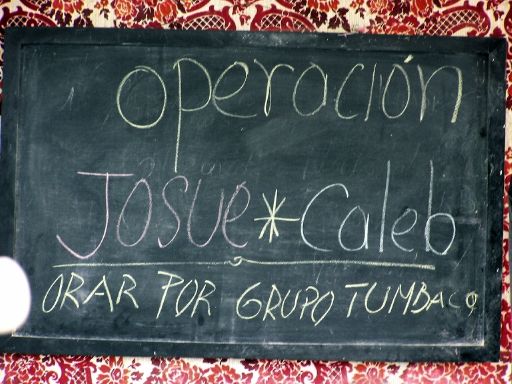 operación
Josue * Caleb
ORAR POR GRUPO TUMBACO